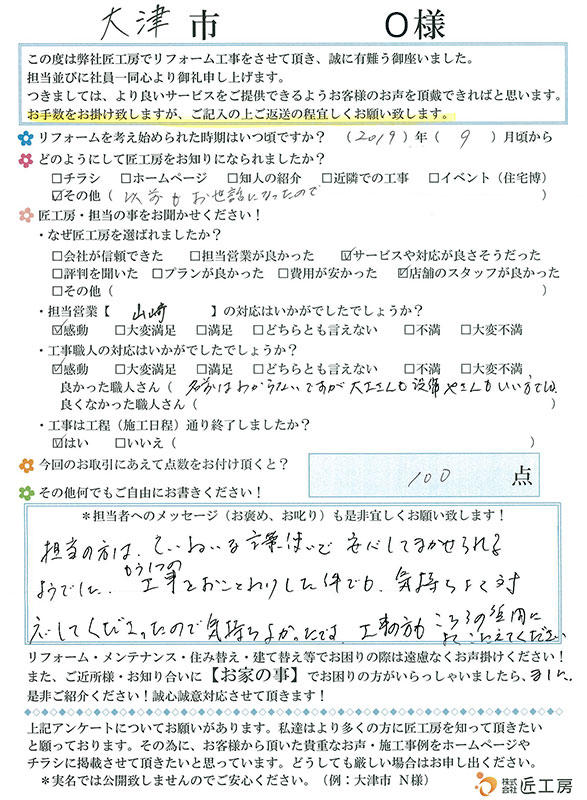 大津市　O様
この度は弊社匠工房でリフォーム工事をさせて頂き、誠に有難う御座いました。
担当並びに社員一同心より御礼申し上げます。
つきましては、より良いサービスをご提供できるようお客様のお声を頂戴できればと思います。
お手数をお掛け致しますが、ご記入の上ご返送の程宜しくお願い致します。
リフォームを考え始められた時期はいつ頃ですか？（2019）年（9）月頃から
どのようにして匠工房をお知りになられましたか？
□チラシ　□ホームページ　□知人の紹介　□近隣での工事　□イベント（住宅博）
☑その他（以前もお世話になったので）
匠工房・担当の事をお聞かせください！
・なぜ匠工房を選ばれましたか？
□会社が信頼できた　□担当営業が良かった　☑サービスや対応が良さそうだった
□評判を聞いた　□プランが良かった　□費用が安かった　☑店舗のスタッフが良かった
□その他（　）
・担当営業【山崎】の対応はいかがでしたでしょうか？
☑感動　□大変満足　□満足　□どちらとも言えない　□不満　□大変不満
・工事職人の対応はいかがでしたでしょうか？
☑感動　□大変満足　□満足　□どちらとも言えない　□不満　□大変不満
良かった職人さん（名前はわからないですが大工さんも設備やさんもいい方でした
良くなかった職人さん（　）
・工事は工程（施工日程）通り終了しましたか？
☑はい　□いいえ（　）
今回のお取引にあえて点数をお付け頂くと？　100点
その他何でもご自由にお書きください！
＊担当者へのメッセージ（お褒め、お叱り）も是非宜しくお願い致します！
担当の方は、ていねいな言葉使いで安心してまかせられる
ようでした。もう1つの工事をおことわりした件でも、気持ちよく対
応してくださったので気持ちよかったです。工事の方もこちらの質問に
よくこたえてください
ました。
リフォーム・メンテナンス・住み替え・建て替え等でお困りの際は遠慮なくお声掛けください！
また、ご近所様・お知り合いに【お家の事】でお困りの方がいらっしゃいましたら、
是非ご紹介ください！誠心誠意対応させて頂きます！
上記アンケートについてお願いがあります。私達はより多くの方に匠工房を知って頂きたい
と願っております。その為に、お客様から頂いた貴重なお声・施工事例をホームページや
チラシに掲載させて頂きたいと思っています。どうしても厳しい場合はお申し出ください。
＊実名では公開致しませんのでご安心ください。（例：大津市 N様）
株式会社匠工房